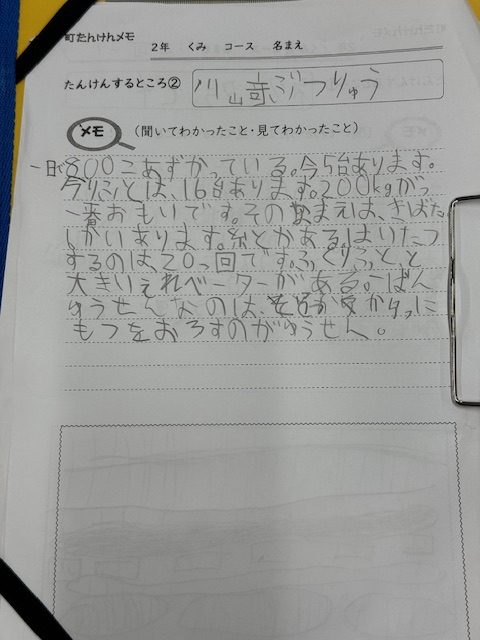 町たんけんメモ
2年 くみ コース 名まえ
たんけんするところ②
川山竜ぶつりゅう
メモ
(聞いてわかったこと・見てわかったこと)
一日800こあずかっている。今5台あります。
今りふとは、16台あります。200kgがっ
一番おもいです。そのなまえは、きばた
しがいあります。糸とかある。はいたつ
するのは、20っ回です。ふっくりふと、と
大きいえれベーターがある。ばん
ゆうせんなのは、
もつをおろすのがゆうせん。